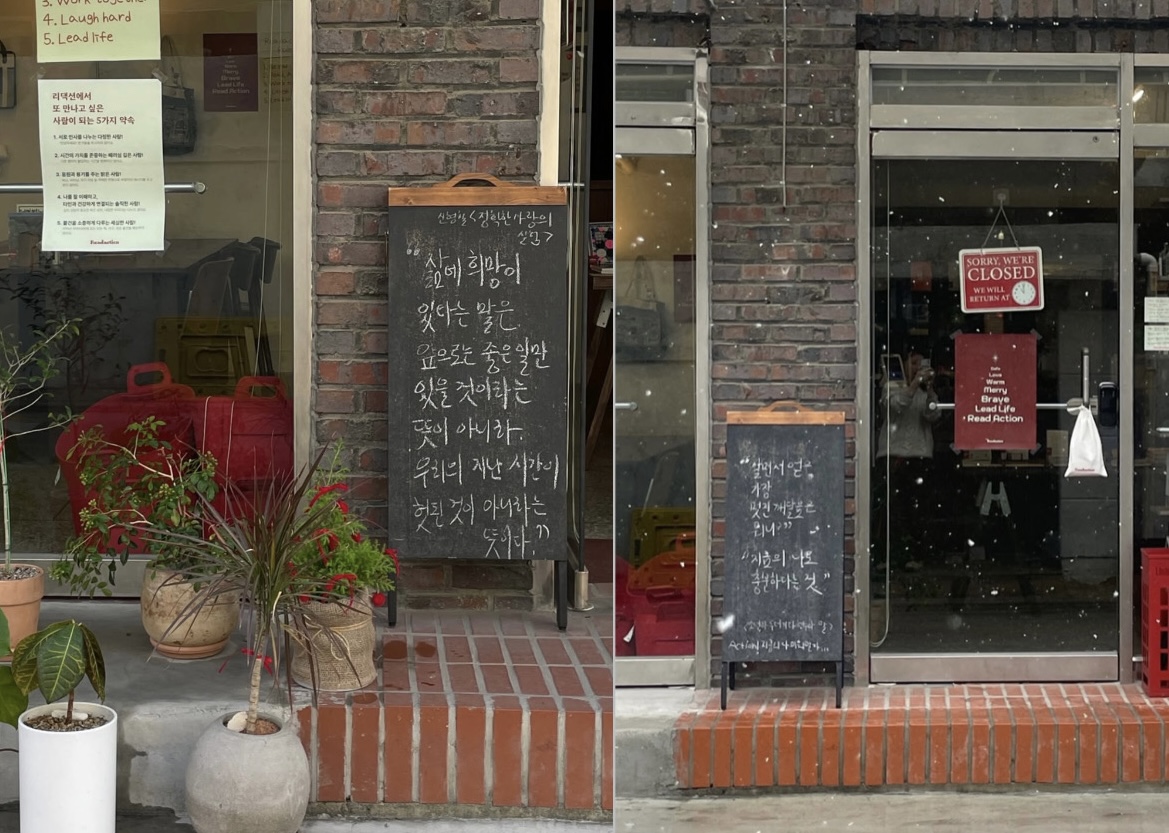 3. Work together
4. Laugh hard
5. Lead life
리댁션에서
또 만나고 싶은
사람이 되는 5가지 약속
1. 서로 인사를 나누는 다정한 사람!
2. 시간의 가치를 존중하는 배려심 깊은 사람!
3. 응원과 용기를 주는 밝은 사람!
4. 나를 잘 이해하고,
타인과 건강하게 연결되는 솔직한 사람!
5. 물건을 소중하게 다루는 세심한 사람!
Readaction
Merry
Brave
Lead Life
Read Action
"삶에 희망이
있다는 말은,
앞으로는 좋은 일만
있을 것이라는
뜻이 아니라.
우리의 지난 시간이
헛된 것이 아니라는
뜻이다."
SORRY, WE'RE
CLOSED
WE WILL
RETURN AT
Safe
Love
Warm
Merry
Brave
Lead Life
Read Action
Readaction
"살면서 얻은
가장
멋진 깨달음은
뭐니?"
"지금의 나로
충분하다는 것"